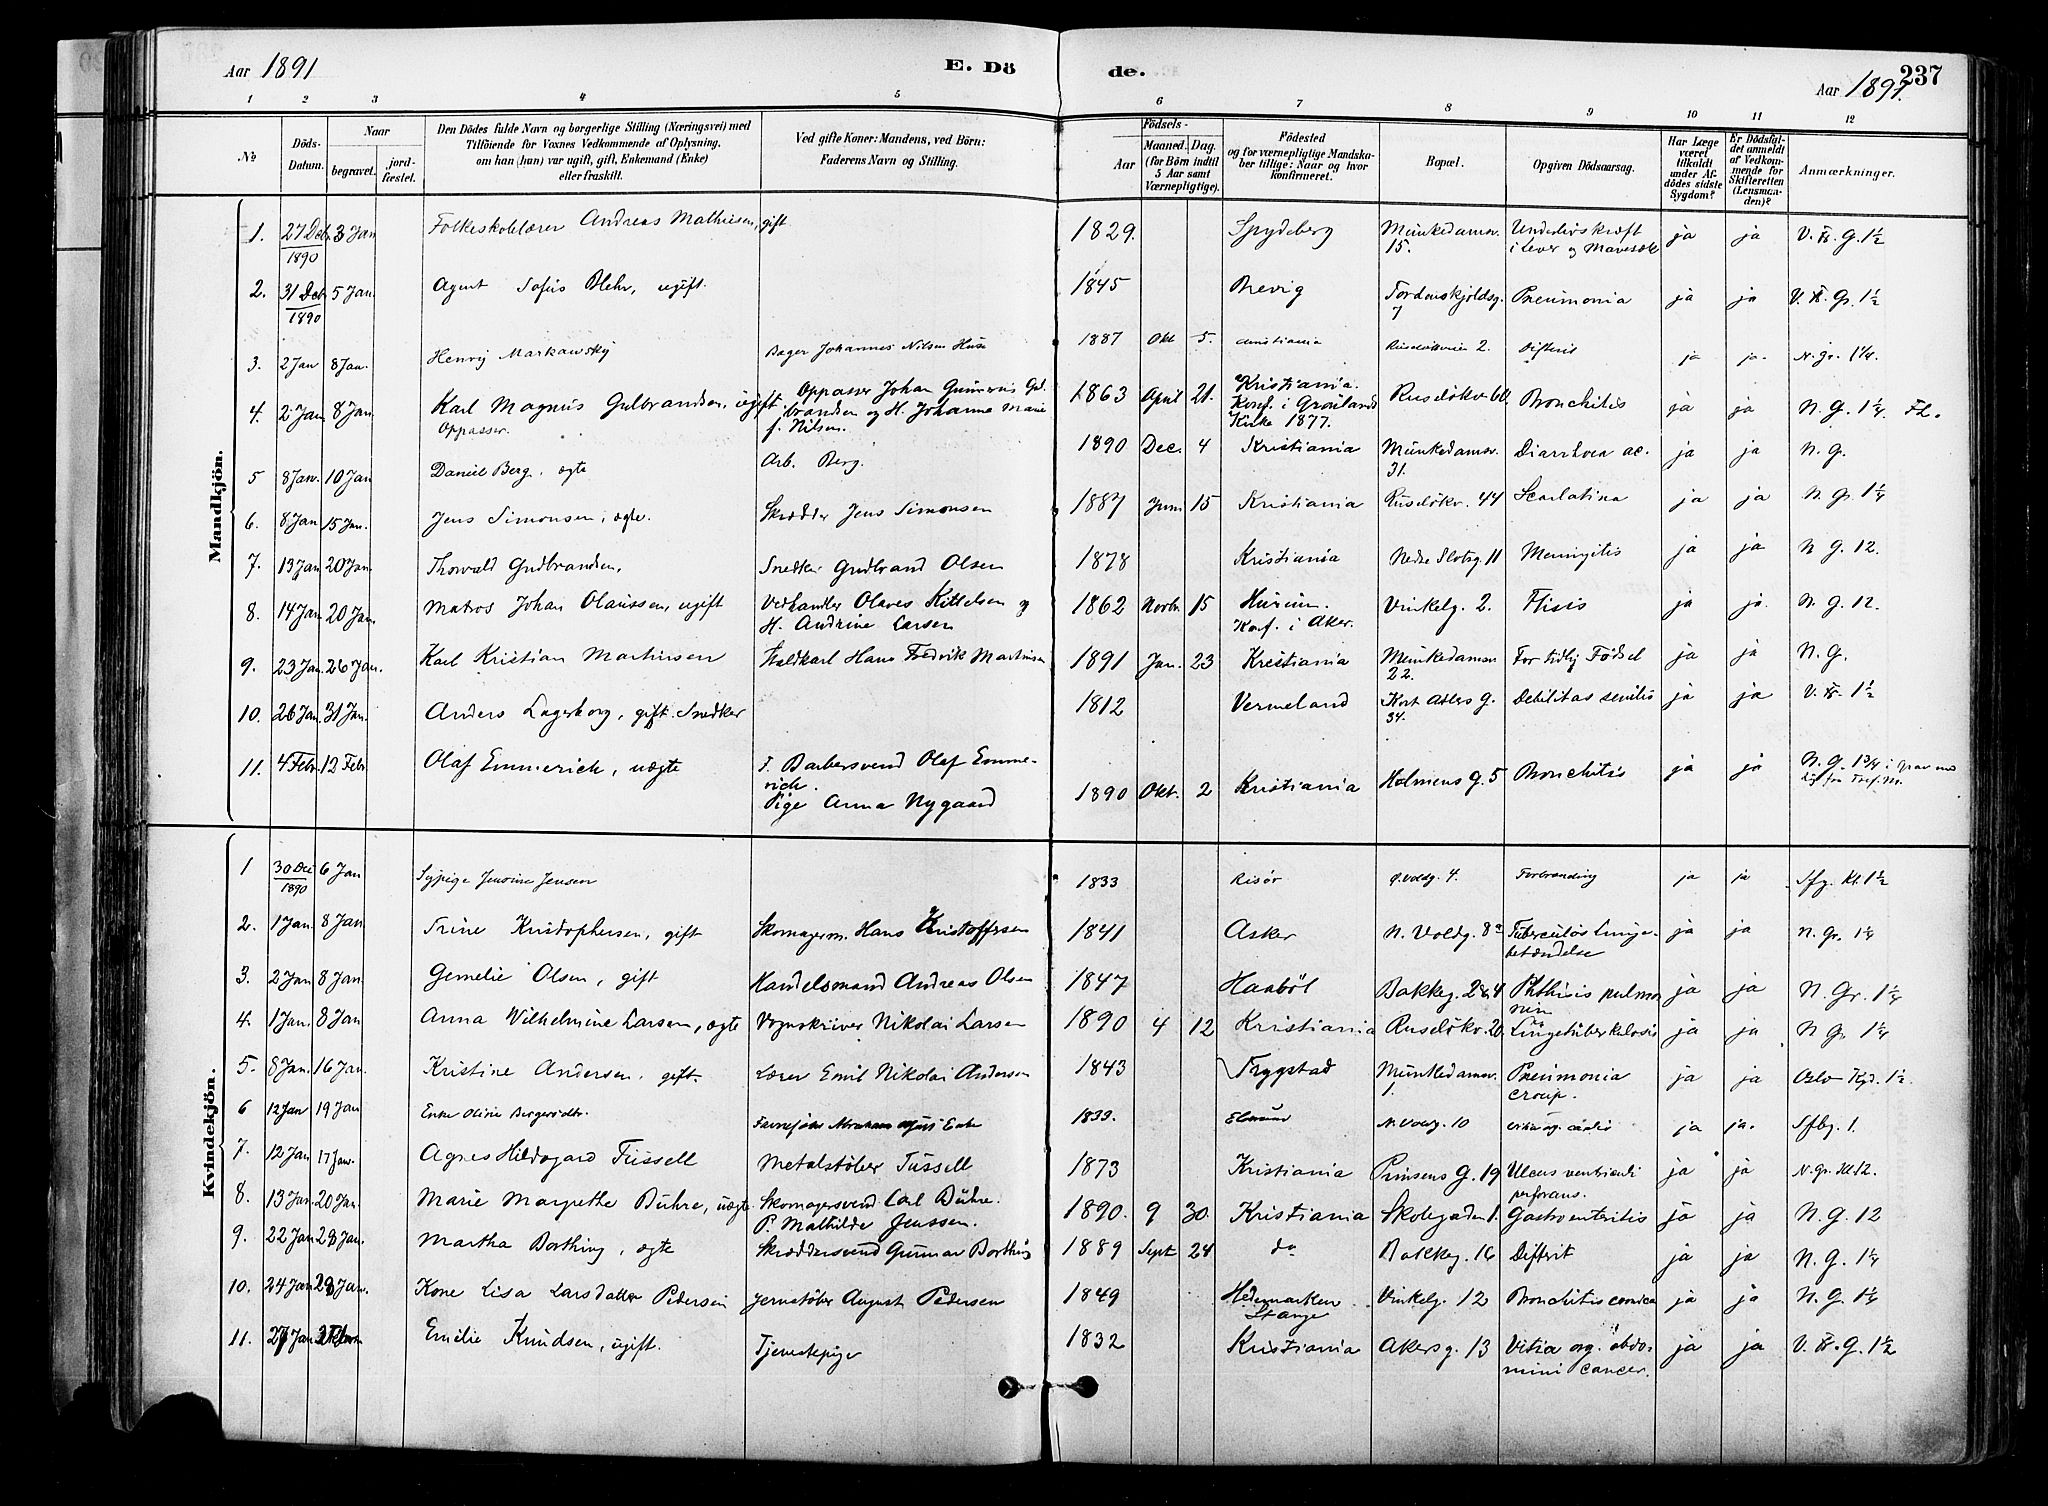 Aar 1891
E. Dö
de.
237
Aar 1891.
1 2 3 4 5 6 7 8 9 10 11 12
No
Döds-Datum.
Naar
begravet.
jord-fæstet.
Den Dödes fulde Navn og borgerlige Stilling (Næringsvei) med
Tilföiende for Voxnes Vedkommende af Oplysning,
om han (hun) var ugift, gift, Enkemand (Enke)
eller fraskilt.
Ved gifte Koner: Mandens, ved Börn:
Faderens Navn og Stilling.
Födsels-
Aar
Maaned. Dag.
(for Börn indtil
5 Aar samt
Værnepligtige).
Födested
og for værnepligtige Mandska-
ber tillige: Naar og hvor
konfirmeret.
Bopæl.
Opgiven Dödsaarsag.
Har Læge
været
tilkaldt
under Af-
dödes sidste
Sygdom?
Er Dödsfal-
det anmeldt
af Vedkom-
mende for
Skifteretten
(Lensman-
den)?
Anmærkninger.
Mandkjön.
1. 27 Deb 1890 3 Jan Folkeskolelærer Andreas Mathiesen, gift 1829. Spydeberg Munkedamsv. 15. Underlivskræft i Lever og Mavesæk ja ja V. Fr. G. 1½
2. 31 Deb 1890 5 Jan. Agent Sofus Blehr, ugift. 1845 Brevig Tordenskjoldsg. 7 Pneumonia ja ja V. Fr. Gr. 1½
3. 2 Jan 8 Jan. Henrij Markawskij Bager Johannes Nilsen Huse 1887 Okt 5. Kristiania Ruseløkveien 2. Difterit ja ja. N. gr. 1¼.
4. 2 Jan 8 Jan. Karl Magnus Gulbrandsen, ugift. Oppasser. Oppasser Johan Gunerius Gulbrandsen og H. Johanne Marie f. Nilsen. 1863 April 21. Kristiania. Konf. i Grønlands Kirke 1877. Ruseløkv. 60. Bronchitis ja ja N. G. 1¼. Fl.
5 8 Jan. 10 Jan Daniel Berg, ægte Arb. Berg. 1890 Dec. 4 Kristiania Munkedamsv. 31. Diarrhoea ac. ja ja N. G.
6. 8 Jan 15 Jan. Jens Simonsen, ægte. Skrædder Jens Simonsen 1887 Juni 15 Kristiania Ruseløkv. 44 Scarlatina ja ja N Gr. 1¼
7. 13 Jan 20 Jan. Thorvald Gudbrandsen, Snedker Gudbrand Olsen 1878 Kristiania Nedre Slotsg. 11 Meningitis ja ja N G. 12.
8. 14 Jan 20 Jan. Matros Johan Olaussen, ugift Vedhandler Olaves Kittelsen og H. Andrine Larsen 1862 Novbr. 15 Hurum. Konf. i Aker. Vinkelg. 2. Ftisis ja ja. N. G. 12.
9. 23 Jan. 26 Jan. Karl Kristian Martinsen Staldkarl Hans Fredrik Martinsen 1891 Jan. 23 Kristiania Munkedamsv. 22. For tidlig Fødsel ja ja N. G.
10. 26 Jan. 31 Jan. Anders Lagerborg, gift. Snedker 1812 Vermeland Kort Adlers G. 34. Debilitas senilis ja ja V. Fr. 1½
11. 4 Febr. 12 Febr Olaf Emmerich, uægte F. Barbersvend Olaf Emmerich. Pige Anna Nygaard 1890 Okt. 2 Kristiania Holmens G. 5 Bronchitis ja ja N. G. i grav med Lig fra
Kvindekjön.
1 30 Dec 1890 6 Jan Sypige Jensine Jensen 1833 Risør Voldg. 4. Forbrænding ja ja Sfg. Kl. 1½
2. 1 Jan. 8 Jan. Trine Kristophersen, gift Skomagerm. Hans Kristoffersen 1841 Asker N. Voldg. 8a Tuberculøs Lunge-betændelse ja ja N. Gr. 1¼
3. 2 Jan 8 Jan. Gemelie Olsen, gift Handelsmand Andreas Olsen 1847 Haabøl Bakkeg. 2&4 Phthisis pulmonum ja ja N. Gr. 1¼
4. 1 Jan. 8 Jan Anna Wilhelmine Larsen, ægte Vognskriver Nikolai Larsen 1890 4 12 Kristiania Ruseløkv. 20. Lungetuberkulosis ja ja N Gr. 1¼
5. 8 Jan. 16 Jan. Kristine Andersen, gift. Lærer Emil Nikolai Andersen 1843 Trygstad Munkedamsv. 1. Pneumonia croup. ja ja Oslo Kgd. 1½
6 12 Jan 19 Jan Enke Oline 1833. N. Voldg. 10 ja ja. Sfbg. 1.
7. 12 Jan 17 Jan. Agnes Hildegard Tussell Metalstøber Tussell 1873 Kristiania Prinsens G. 19 Ulcus ventriculi perforans. ja ja N. Gr. Kl. 12.
8. 13 Jan. 20 Jan. Marie Margrethe Buhre, uægte Skomagersvend Carl Buhre. P. Mathilde Jenssen. 1890. 9 30 Kristiania Skolegaden 1. Gastroenteritis ja ja N. G. 12
9. 22 Jan 28 Jan. Martha Borthing, ægte Skræddersvend Gunnar Borthing 1889 Sept 24 do Bakkeg. 16 Difterit ja ja N. G. 1¼
10. 24 Jan 28 Jan. Kone Lisa Larsdatter Pedersen Jernstøber August Pedersen 1849 Hedemarken Stange Vinkelg. 12 Bronchitis cronica ja ja N. G. 1¼
11. 27 Jan Emilie Knudsen, ugift. Tjenestepige 1832 Kristiania Akersg. 13 Vitia org. abdomini cancer. ja ja V. Fr. G. 1½